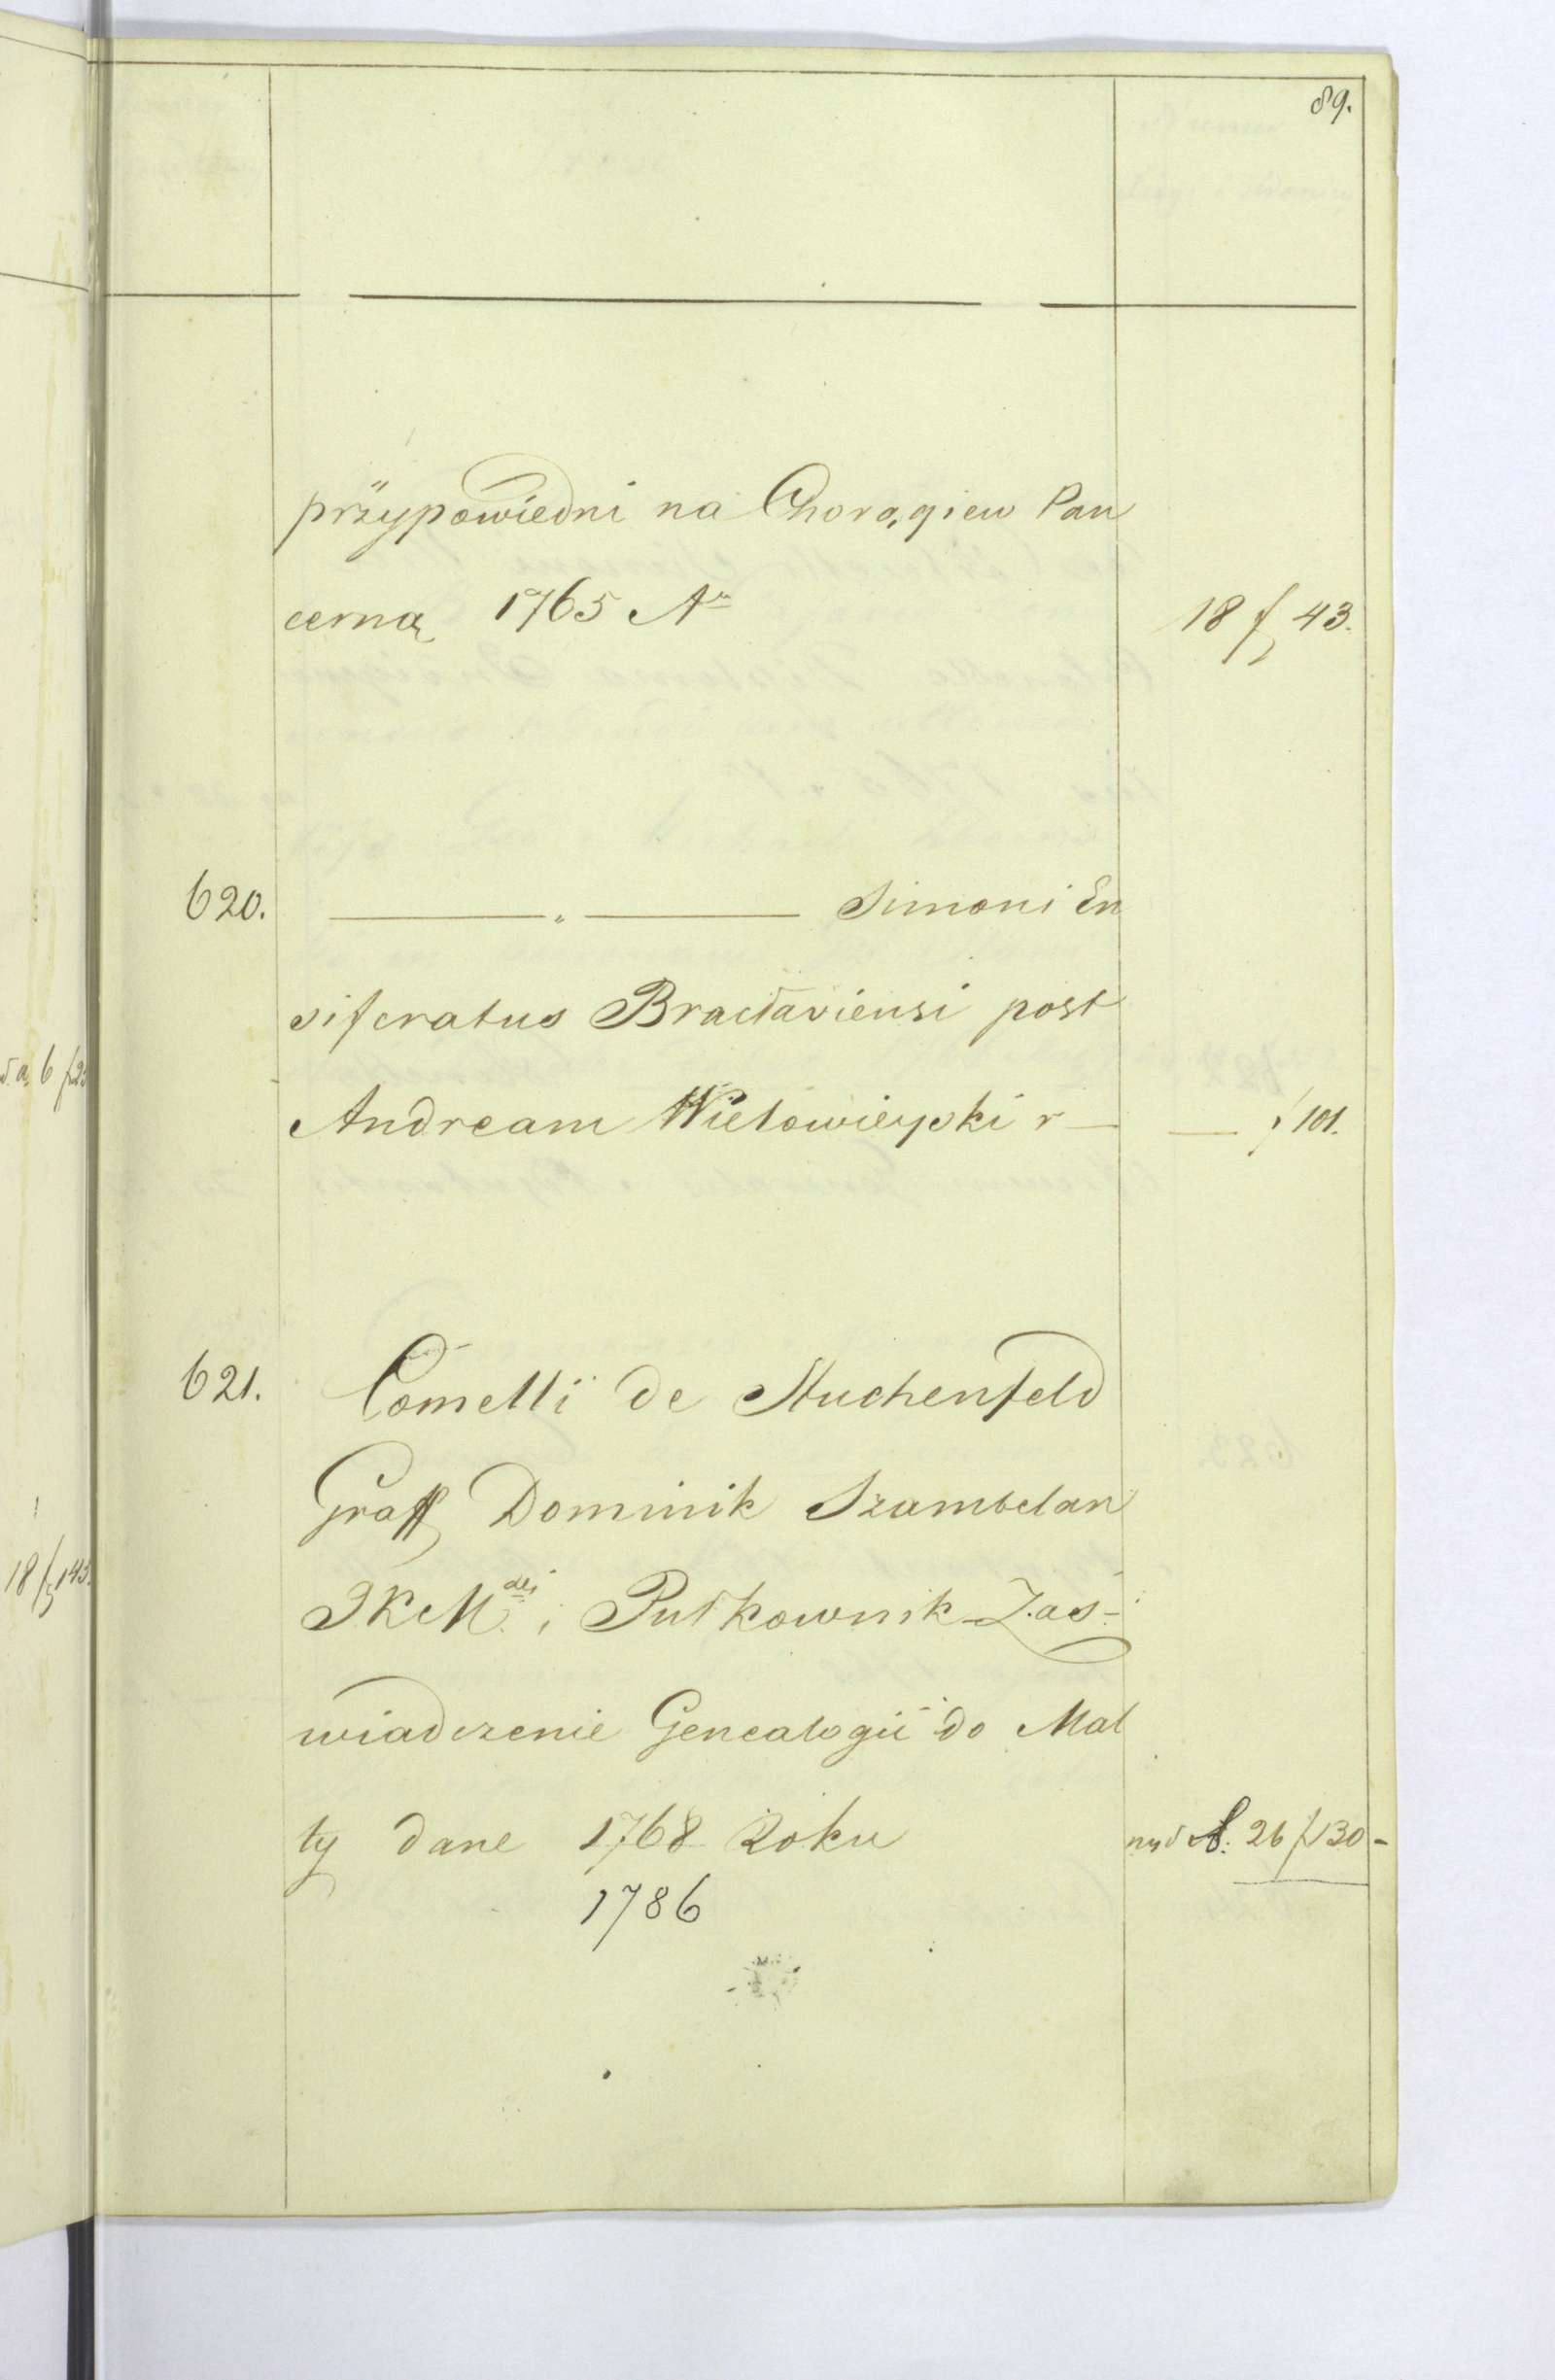 89.
przypowiedni na Chorągiew Pan
cerną 1765 A 18 f 43.
620. ——„—— Simoni En
siferatus Bracłaviensi post
Andream Wielowieyski r — — f 101.
621. Comelli de Stuchenfeld
Graff Dominik Szambelan
JKM i Pułkownik Zaś-
wiadczenie Genealogii do Mal
ty dane 1768 Roku 26 f 130 -
1786
18 f 143.